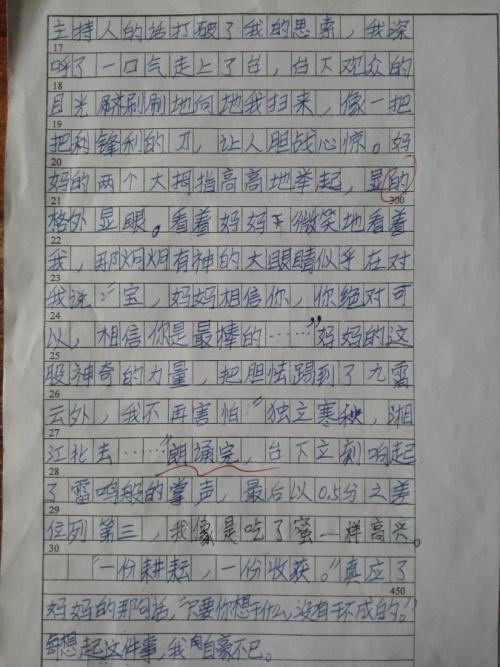 主持人的话打破了我的思索，我深
17
呼了一口气走上了台，台下观众的
18
目光刷刷地向地我扫来，像一把
19
把利锋利的刀，让人胆战心惊。妈
20
妈的两个大拇指高高地举起，显的
21
300
格外显眼。看着妈妈微笑地看着
22
我，那炯炯有神的大眼睛似乎在对
23
我说：“宝，妈妈相信你，你绝对可
24
以，相信你是最棒的……”妈妈的这
25
股神奇的力量，把胆怯踢到了九霄
26
云外，我不再害怕“独立寒秋，湘
27
江北去……”朗诵完，台下立刻响起
28
了雷鸣般的掌声，最后以0.5分之差
29
位列第三，我像是吃了蜜一样高兴。
30
“一份耕耘，一份收获。”真应了
450
妈妈的那句话，“只要你想干什么，没有干不成的。”
每想起这件事，我自豪不已。